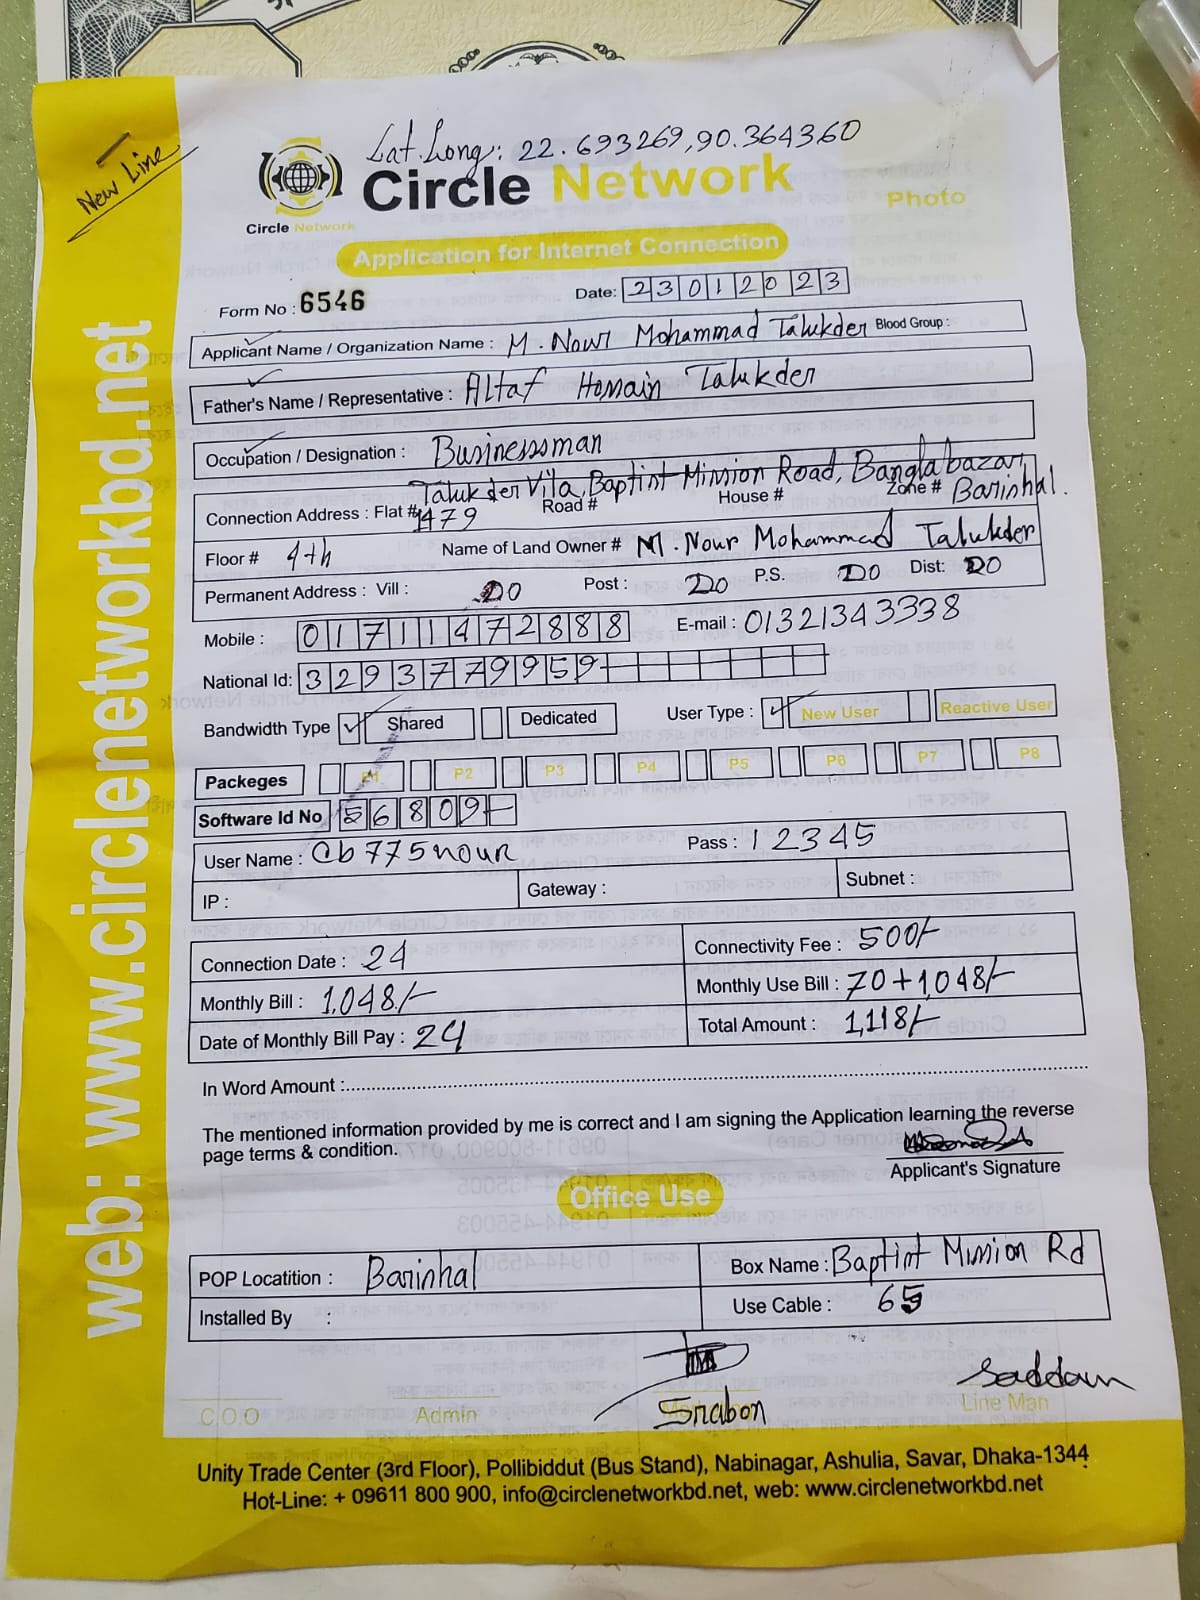 New Line
Lat.Long: 22.693269,90.364360
Circle Network
Circle Network
Photo
Application for Internet Connection
Form No : 6546 Date: 23012023
Applicant Name / Organization Name : M. Nour Mohammad Talukder Blood Group :
Father's Name / Representative : Altaf Hossain Talukder
Occupation / Designation : Businessman
Talukder Vila, Baptist Mission Road, Banglabazar,
Connection Address : Flat # 1479 Road # House # Zone # Barishal.
Floor # 4th Name of Land Owner # M. Nour Mohammad Talukder
Permanent Address : Vill : DO Post : DO P.S. DO Dist: DO
Mobile : 01711472888 E-mail : 01321343338
National Id: 3293779959
Bandwidth Type Shared Dedicated User Type : New User Reactive User
Packeges P1 P2 P3 P4 P5 P6 P7 P8
Software Id No 56809
User Name : cb775nour Pass : 12345
IP : Gateway : Subnet :
Connection Date : 24 Connectivity Fee : 500/-
Monthly Bill : 1,048/- Monthly Use Bill : 70+1,048/-
Date of Monthly Bill Pay : 24 Total Amount : 1,118/-
In Word Amount :
The mentioned information provided by me is correct and I am signing the Application learning the reverse
page terms & condition.
Applicant's Signature
Office Use
POP Locatition : Barishal Box Name : Baptist Mission Rd
Installed By : Use Cable : 65
Srabon Saddam
C.O.O Admin Line Man
Unity Trade Center (3rd Floor), Pollibiddut (Bus Stand), Nabinagar, Ashulia, Savar, Dhaka-1344
Hot-Line: + 09611 800 900, info@circlenetworkbd.net, web: www.circlenetworkbd.net
web: www.circlenetworkbd.net